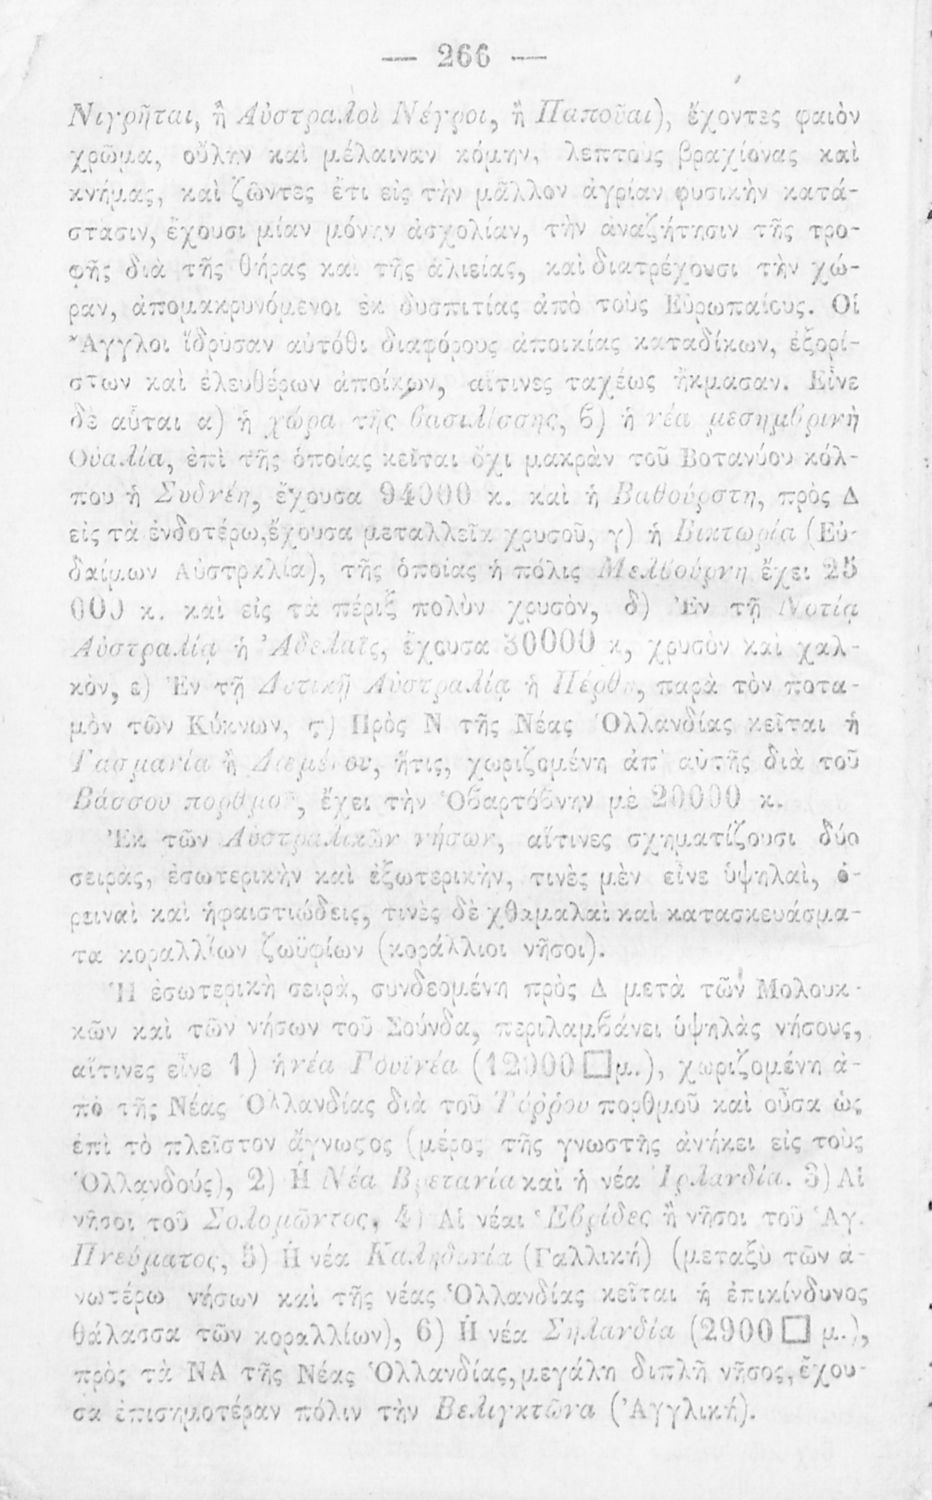 — 266 —
Νιγρῆται, ἢ Αὐστραλοὶ Νέγροι, ἢ Παποῦαι), ἔχοντες φαιὸν
χρῶμα, οὔλην καὶ μέλαιναν κόμην, λεπτοὺς βραχίονας καὶ
κνήμας, καὶ ζῶντες ἔτι εἰς τὴν μᾶλλον ἀγρίαν φυσικὴν κατά-
στασιν, ἔχουσι μίαν μόνην ἀσχολίαν, τὴν ἀναζήτησιν τῆς τρο-
φῆς διὰ τῆς θήρας καὶ τῆς ἁλιείας, καὶ διατρέχουσι τὴν χώ-
ραν, ἀπομακρυνόμενοι ἐκ δυσπιτίας ἀπὸ τοὺς Εὐρωπαίους. Οἱ
Ἄγγλοι ἵδρυσαν αὐτόθι διαφόρους ἀποικίας καταδίκων, ἐξορί-
στων καὶ ἐλευθέρων ἀποίκων, αἵτινες ταχέως ἤκμασαν. Εἶνε
δὲ αὗται α) ἡ χώρα τῆς βασιλίσσης, β) ἡ νέα μεσημβρινὴ
Οὐαλία, ἐπὶ τῆς ὁποίας κεῖται ὄχι μακρὰν τοῦ Βοτανύου κόλ-
που ἡ Συδνέη, ἔχουσα 94000 κ. καὶ ἡ Βαθούρστη, πρὸς Δ
εἰς τὰ ἐνδοτέρω, ἔχουσα μεταλλεῖα χρυσοῦ, γ) ἡ Βικτωρία (Εὐ-
δαίμων Αὐστραλία), τῆς ὁποίας ἡ πόλις Μελβούρνη ἔχει 25
000 κ. καὶ εἰς τὰ πέριξ πολὺν χρυσὸν, δ) Ἐν τῇ Νοτίᾳ
Αὐστραλίᾳ ἡ Ἀδελαῒς, ἔχουσα 30000 κ, χρυσὸν καὶ χαλ-
κὸν, ε) Ἐν τῇ Δυτικῇ Αὐστραλίᾳ ἡ Πέρθη, παρὰ τὸν ποτα-
μὸν τῶν Κύκνων, ς) Πρὸς Ν τῆς Νέας Ὁλλανδίας κεῖται ἡ
Τασμανία ἢ Διεμένου, ἥτις, χωριζομένη ἀπ' αὐτῆς διὰ τοῦ
Βάσσου πορθμοῦ, ἔχει τὴν Ὁβαρτόβνην μὲ 20000 κ.
Ἐκ τῶν Αὐστραλικῶν νήσων, αἵτινες σχηματίζουσι δύο
σειρὰς, ἐσωτερικὴν καὶ ἐξωτερικὴν, τινὲς μὲν εἶνε ὑψηλαὶ, ὀ-
ρειναὶ καὶ ἡφαιστιώδεις, τινὲς δὲ χθαμαλαὶ καὶ κατασκευάσμα-
τα κοραλλίων ζωϋφίων (κοράλλιοι νῆσοι).
Ἡ ἐσωτερικὴ σειρὰ, συνδεομένη πρὸς Δ μετὰ τῶν Μολουκ-
κῶν καὶ τῶν νήσων τοῦ Σούνδα, περιλαμβάνει ὑψηλὰς νήσους,
αἵτινες εἶνε 1) ἡ νέα Γουϊνέα (12000 □ μ.), χωριζομένη ἀ-
πὸ τῆς Νέας Ὁλλανδίας διὰ τοῦ Τόρρου πορθμοῦ καὶ οὖσα ὡς
ἐπὶ τὸ πλεῖστον ἄγνωςος (μέρος τῆς γνωστῆς ἀνήκει εἰς τοὺς
Ὁλλανδούς), 2) Ἡ Νέα Βρετανία καὶ ἡ νέα Ἰρλανδία. 3) Αἱ
νῆσοι τοῦ Σολομῶντος, 4) Αἱ νέαι Ἑβρίδες ἢ νῆσοι τοῦ Ἁγ.
Πνεύματος, 5) Ἡ νέα Καληδονία (Γαλλική) (μεταξὺ τῶν ἀ-
νωτέρω νήσων καὶ τῆς νέας Ὁλλανδίας κεῖται ἡ ἐπικίνδυνος
θάλασσα τῶν κοραλλίων), 6) Ἡ νέα Σηλανδία (2900 □ μ.),
πρὸς τὰ ΝΑ τῆς Νέας Ὁλλανδίας, μεγάλη διπλῆ νῆσος, ἔχου-
σα ἐπισημοτέραν πόλιν τὴν Βελιγκτῶνα (Ἀγγλική).